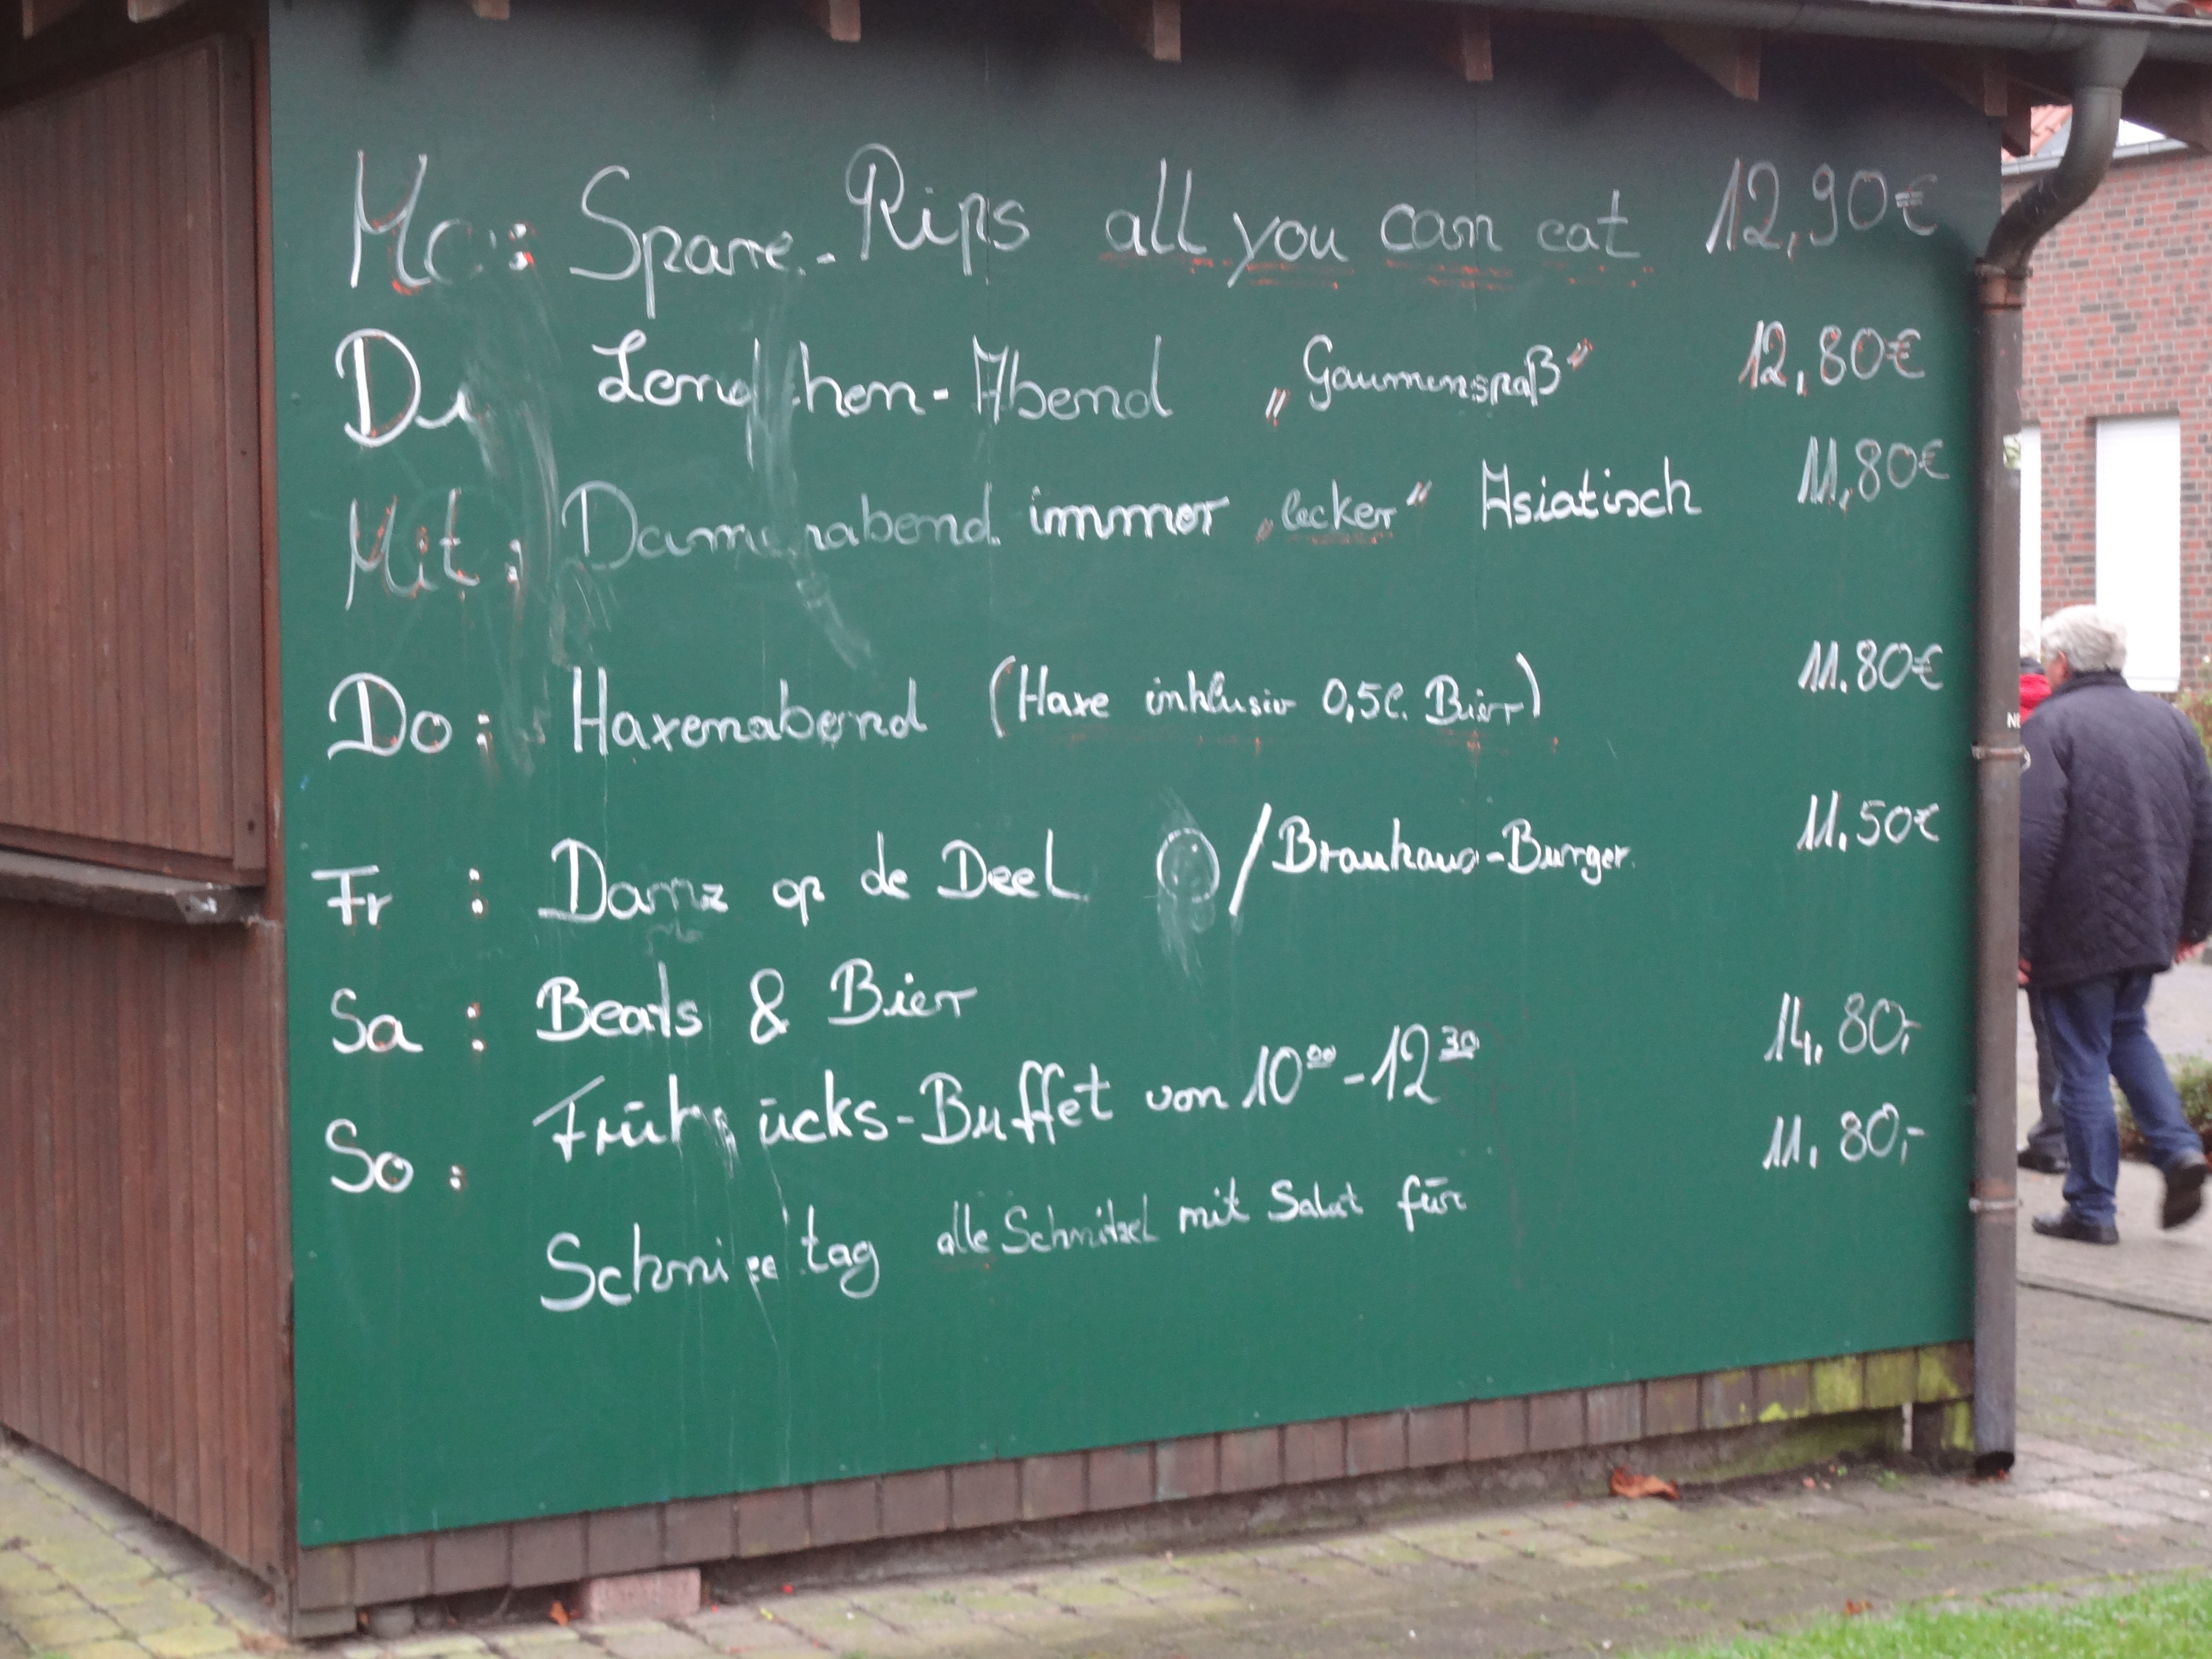 Mo: Spare-Rips all you can eat 12,90€
Di Lendchen-Abend „Gaumenspaß" 12,80€
Mit: Damenabend immer „lecker" Asiatisch 11,80€
Do: Haxenabend (Haxe inklusiv 0,5l. Bier) 11.80€
Fr : Danz op de Deel / Brauhaus-Burger. 11.50€
Sa : Beats & Bier
So: Frühstücks-Buffet von 10⁰⁰-12³⁰ 14,80,-
Schnitzeltag alle Schnitzel mit Salat für 11,80,-